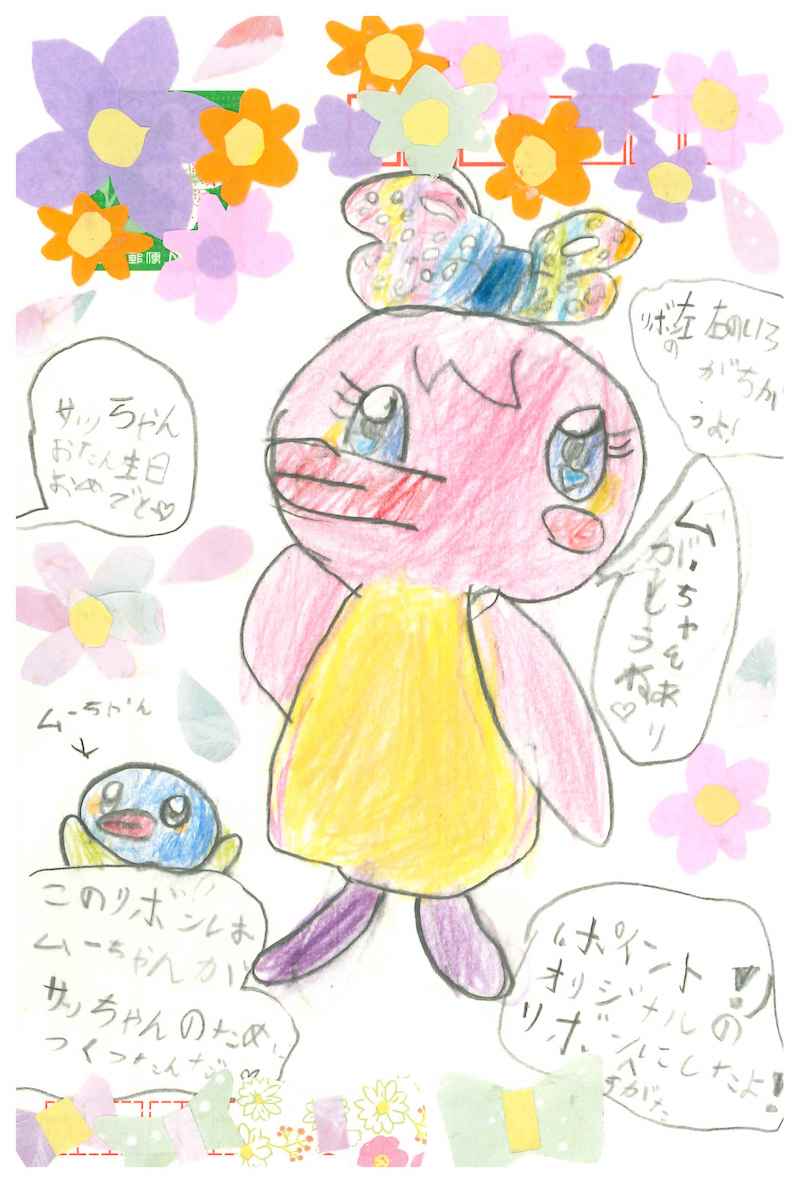 郵便
リボンの左右のいろ
がちが
うよ!
サッちゃん
おたん生日
おめでと♡
ムーちゃんあり
がとうね♡
ムーちゃん
↓
このリボンは
ムーちゃんが
サッちゃんのために
つくったんだ
ポイント
オリジナルの
リボンにしたよ!